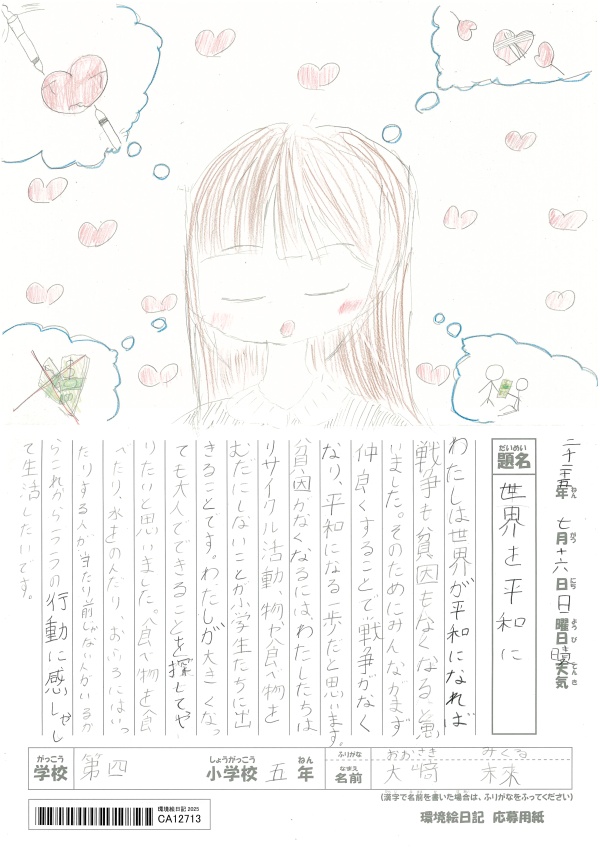 二十五年 七月十六日 日曜日 天気
ねん がつ にち ようび てんき
だいめい
題名
世界を平和に
わたしは世界が平和になれば
戦争も貧困もなくなると思
いました。そのためにみんながまず
仲良くすることで戦争がなく
なり、平和になる一歩だと思います。
貧困がなくなるには、わたしたちは
リサイクル活動、物や食べ物を
むだにしないことが小学生たちに出
きることです。わたしが大きくなっ
ても大人でできることを探してや
りたいと思いました。食べ物を食
べたり、水をのんだり、おふろにはいっ
たりする人が当たり前じゃない人がいるか
らこれから一つ一つの行動に感しゃし
て生活したいです。
がっこう
学校
第四
しょうがっこう
小学校
五
ねん
年
ふりがな
おおさき みくる
なまえ
名前
大﨑 未来
(漢字で名前を書いた場合は、ふりがなをふってください)
環境絵日記 2025
CA12713
環境絵日記 応募用紙